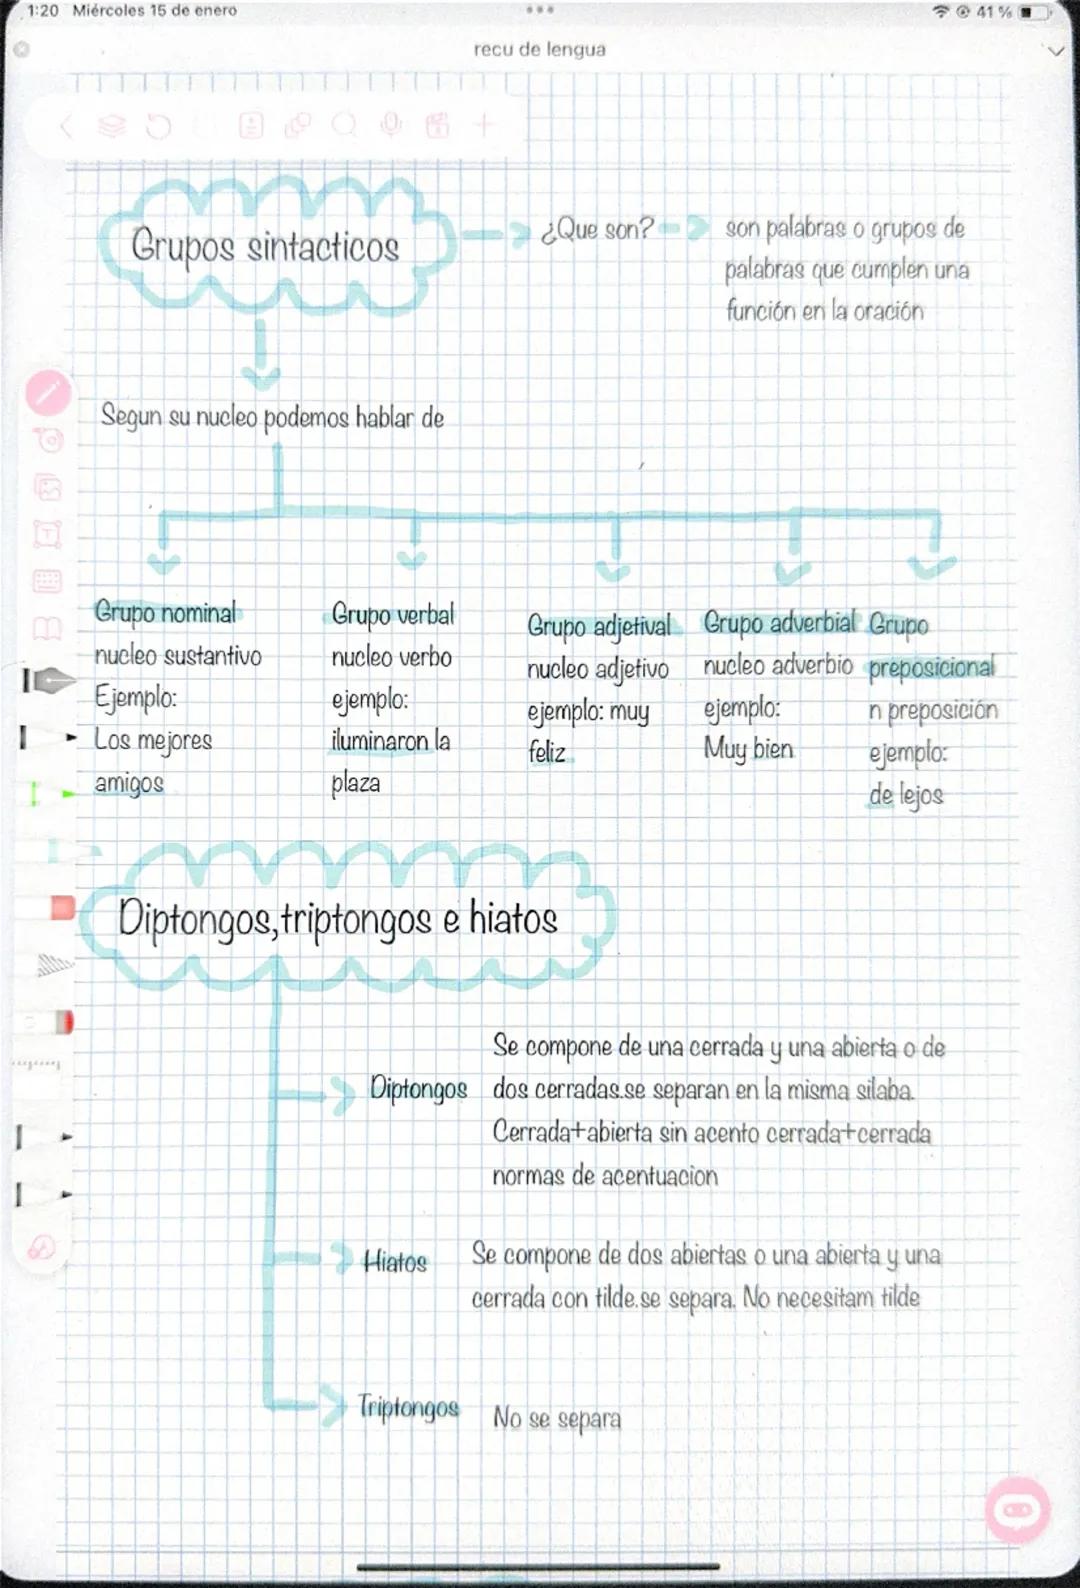 1:20 Miércoles 15 de enero
41 %
recu de lengua
Grupos sintacticos
¿Que son?
son palabras o grupos de
palabras que cumplen una
función en la oración
Segun su nucleo podemos hablar de
Grupo nominal
nucleo sustantivo
Ejemplo:
Los mejores
amigos
Grupo verbal
nucleo verbo
ejemplo:
iluminaron la
plaza
Grupo adjetival
nucleo adjetivo
ejemplo: muy
feliz
Grupo adverbial
nucleo adverbio
ejemplo:
Muy bien
Grupo
preposicional
n preposición
ejemplo:
de lejos
Diptongos,triptongos e hiatos
Diptongos
Se compone de una cerrada y una abierta o de
dos cerradas.se separan en la misma silaba.
Cerrada+abierta sin acento cerrada+cerrada
normas de acentuacion
Hiatos
Se compone de dos abiertas o una abierta y una
cerrada con tilde.se separa. No necesitam tilde
Triptongos
No se separa